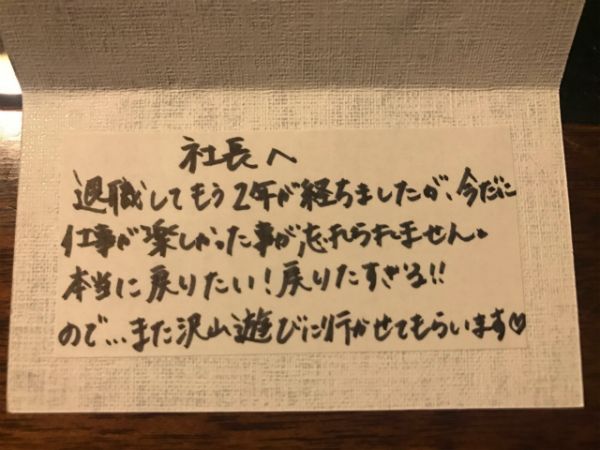 社長へ
退職してもう2年が経ちましたが、今だに
仕事が楽しかった事が忘れられません。
本当に戻りたい！戻りたすぎる!!
ので...また沢山遊びに行かせてもらいます♡